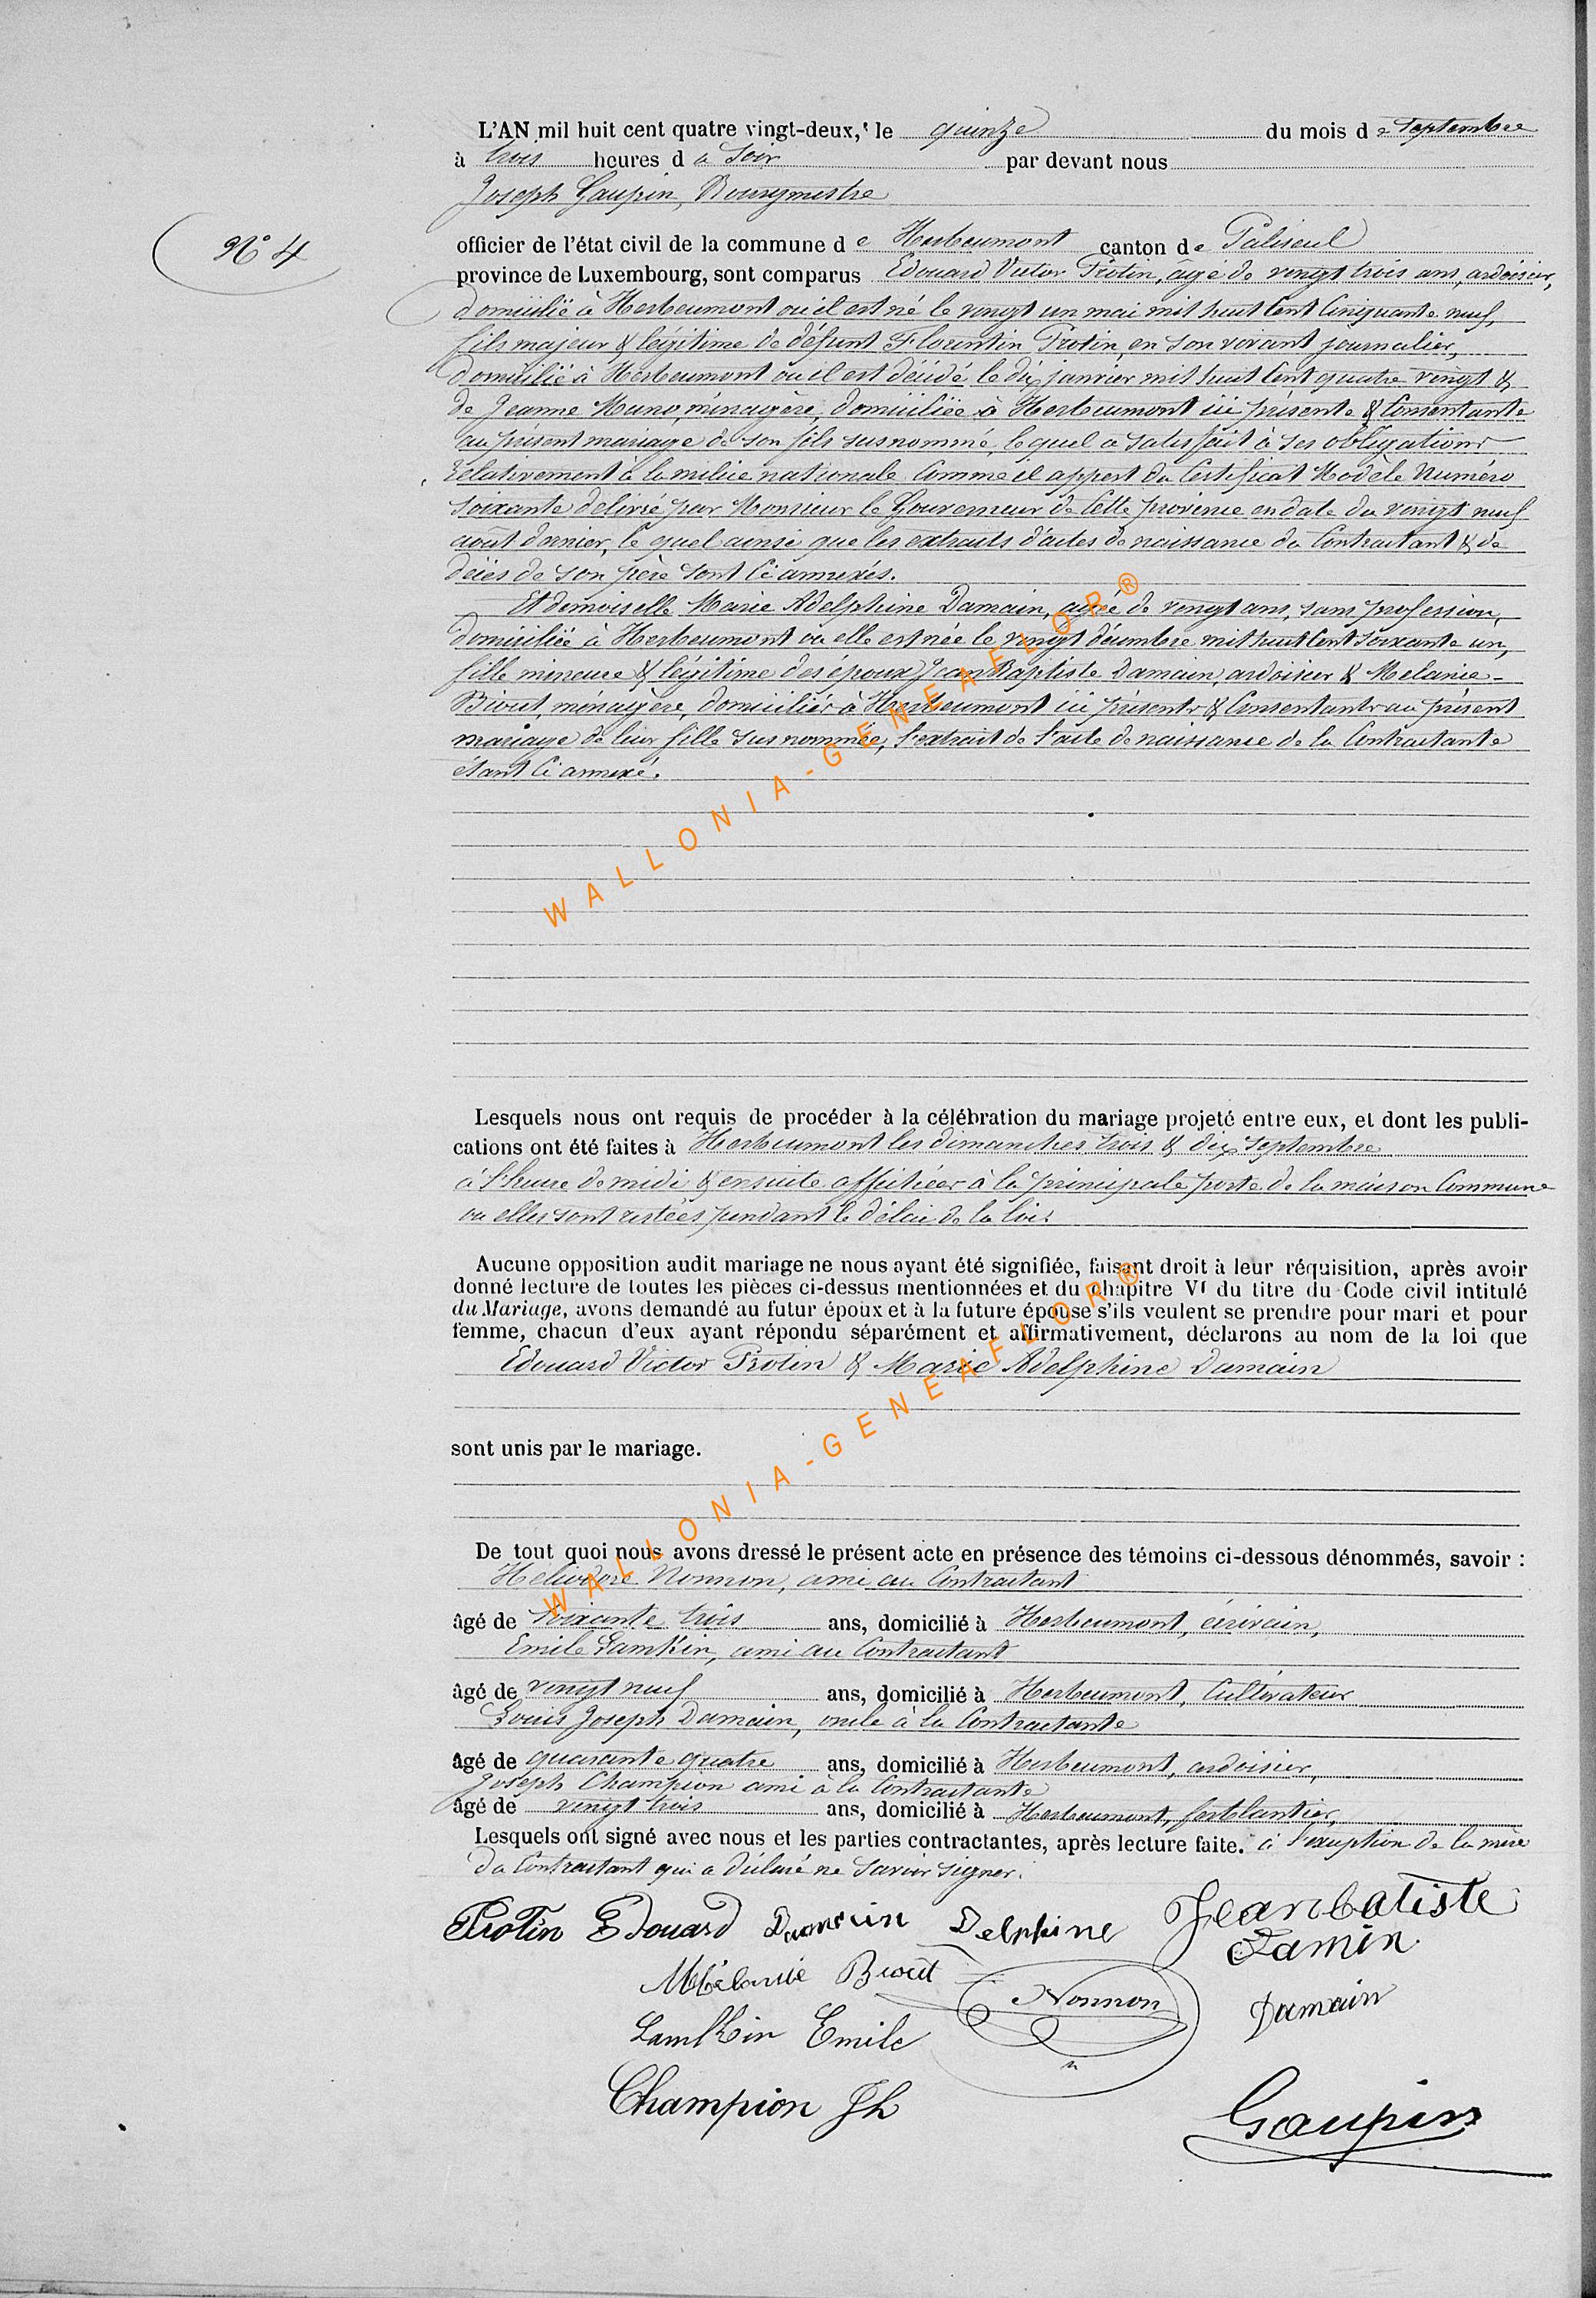 L'AN mil huit cent quatre vingt-deux, le quinze du mois de Septembre
à trois heures du Soir par devant nous
Joseph Gaupin, Bourgmestre
N° 4
officier de l'état civil de la commune de Herbeumont canton de Paliseul
province de Luxembourg, sont comparus Edouard Victor Protin, âgé de vingt trois ans, ardoisier,
domicilié à Herbeumont où il est né le vingt un mai mil huit Cent Cinquante neuf,
fils majeur & légitime de défunt Florentin Protin, en son vivant journalier,
domicilié à Herbeumont où il est décédé le dix janvier mil huit Cent quatre vingt &
de Jeanne Muno, ménagère, domiciliée à Herbeumont ici présente & Consentante
au présent mariage de son fils susnommé, lequel a satisfait à ses obligations
relativement à la milice nationale Comme il appert du Certificat Modèle Numéro
soixante délivré par Monsieur le Gouverneur de Cette province en date du vingt neuf
août dernier, le quel ainsi que les extraits d'actes de naissance du Contractant & de
décès de son père sont Ci annexés.
Et demoiselle Marie Adelphine Damain, agée de vingt ans, sans profession,
domiciliée à Herbeumont où elle est née le vingt décembre mil huit Cent soixante un,
fille mineure & légitime des époux Jean Baptiste Damain, ardoisier & Melanie
Biout, ménagère, domiciliés à Herbeumont ici présents & Consentants au présent
mariage de leur fille susnommée, l'extrait de l'acte de naissance de la Contractante
étant Ci annexé.
WALLONIA-GENEAFLOR®
Lesquels nous ont requis de procéder à la célébration du mariage projeté entre eux, et dont les publi-
cations ont été faites à Herbeumont les dimanches trois & dix Septembre
à l'heure de midi & ensuite affichées à la principale porte de la maison Commune
ou elles sont restées pendant le délai de la loi.
Aucune opposition audit mariage ne nous ayant été signifiée, faisant droit à leur réquisition, après avoir
donné lecture de toutes les pièces ci-dessus mentionnées et du chapitre VI du titre du Code civil intitulé
du Mariage, avons demandé au futur époux et à la future épouse s'ils veulent se prendre pour mari et pour
femme, chacun d'eux ayant répondu séparément et affirmativement, déclarons au nom de la loi que
Edouard Victor Protin & Marie Adelphine Damain
sont unis par le mariage.
WALLONIA-GENEAFLOR®
De tout quoi nous avons dressé le présent acte en présence des témoins ci-dessous dénommés, savoir :
Héliodore Nonnon, ami au Contractant
âgé de soixante trois ans, domicilié à Herbeumont, écrivain,
Emile Lamkin, ami au Contractant
âgé de vingt neuf ans, domicilié à Herbeumont, Cultivateur
Louis Joseph Damain, oncle à la Contractante
âgé de quarante quatre ans, domicilié à Herbeumont, ardoisier,
Joseph Champion ami à la Contractante
âgé de vingt trois ans, domicilié à Herbeumont, ferblantier,
Lesquels ont signé avec nous et les parties contractantes, après lecture faite. à l'exception de la mère
du Contractant qui a déclaré ne savoir signer.
Protin Edouard Damain Delphine Jean batiste
Damin
Mélanie Biout Nonnon Damain
Lamkin Emile
Champion Jh Gaupin